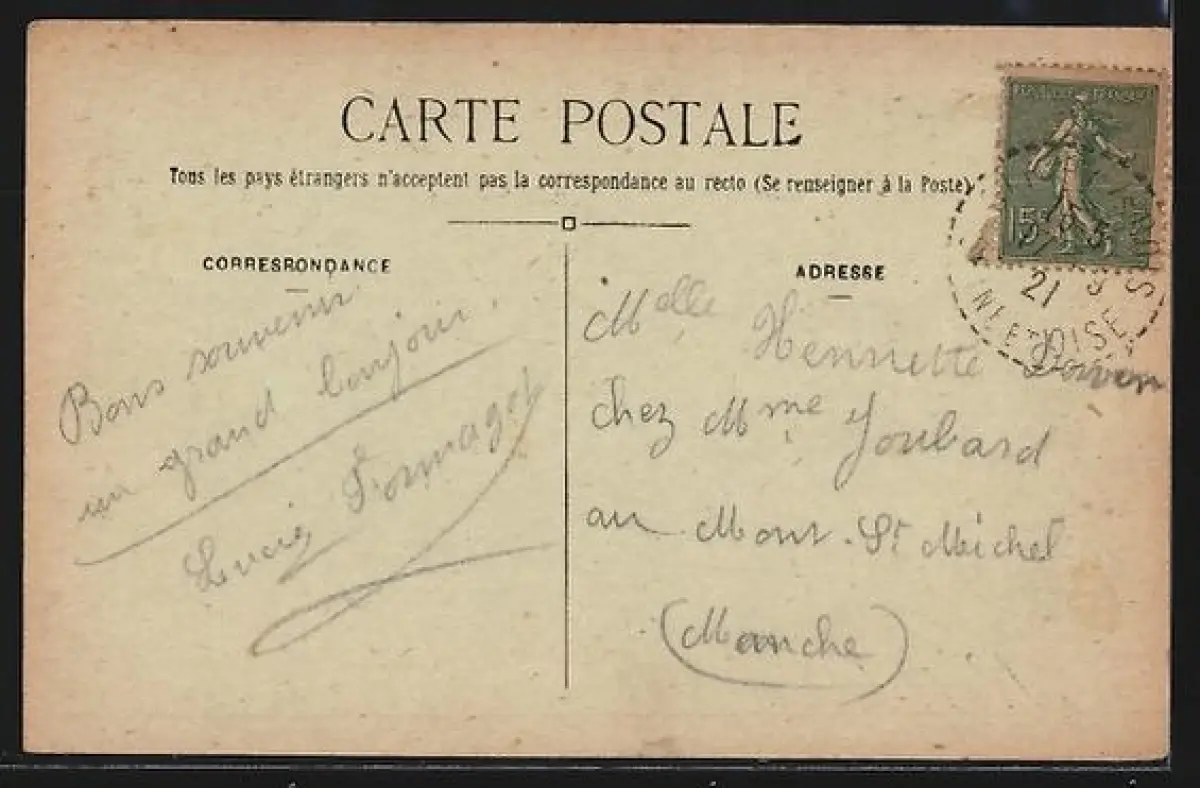 CARTE POSTALE
Tous les pays étrangers n'acceptent pas la correspondance au recto (Se renseigner à la Poste)
CORRESPONDANCE
Bons souvenir
un grand bonjour.
Lucie Fromaget
ADRESSE
Melle Henriette
chez Mme Joubard
au Mont St Michel
(Manche)
15c
21
OISE